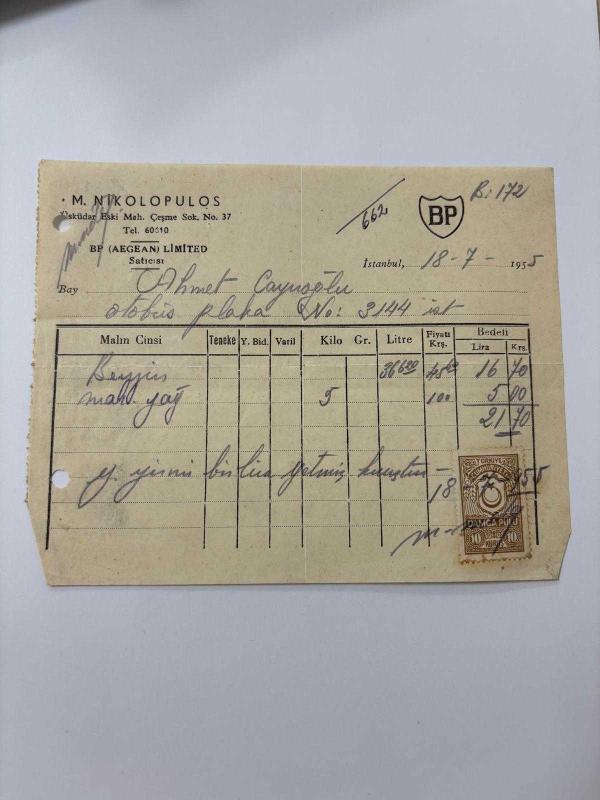 • M. NIKOLOPULOS
Üsküdar Eski Mah. Çeşme Sok. No. 37
Tel. 60610
BP (AEGEAN) LİMİTED
Satıcısı
662
BP
B: 172
İstanbul, 18-7-1955
Bay Ahmet
otobüs plaka No: 3144 ist
Malın Cinsi Teneke Y. Bid. Varil Kilo Gr. Litre Fiyatı Krş. Bedeli Lira Krş.
Benzin 36 600 45 60 16 70
yağ 5 100 5 00
21 70
Y. yirmi bir lira yetmiş kuruştur
18-7-955
TÜRKİYE
CUMHURİYETİ
DAMGA PULU
10 KURUŞ 10